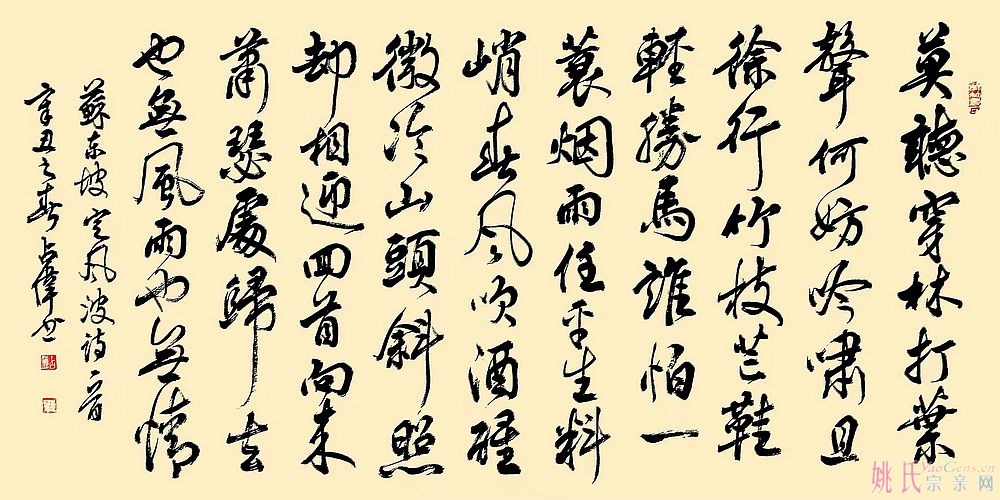 莫聽穿林打葉
聲何妨吟嘯且
徐行竹杖芒鞋
輕勝馬誰怕一
蓑烟雨任平生料
峭春風吹酒醒
微冷山頭斜照
却相迎回首向来
蕭瑟處歸去
也無風雨也無情
蘇東坡定風波詩一首
辛丑之春占偉書
姚氏宗亲网
YaoGens.cn